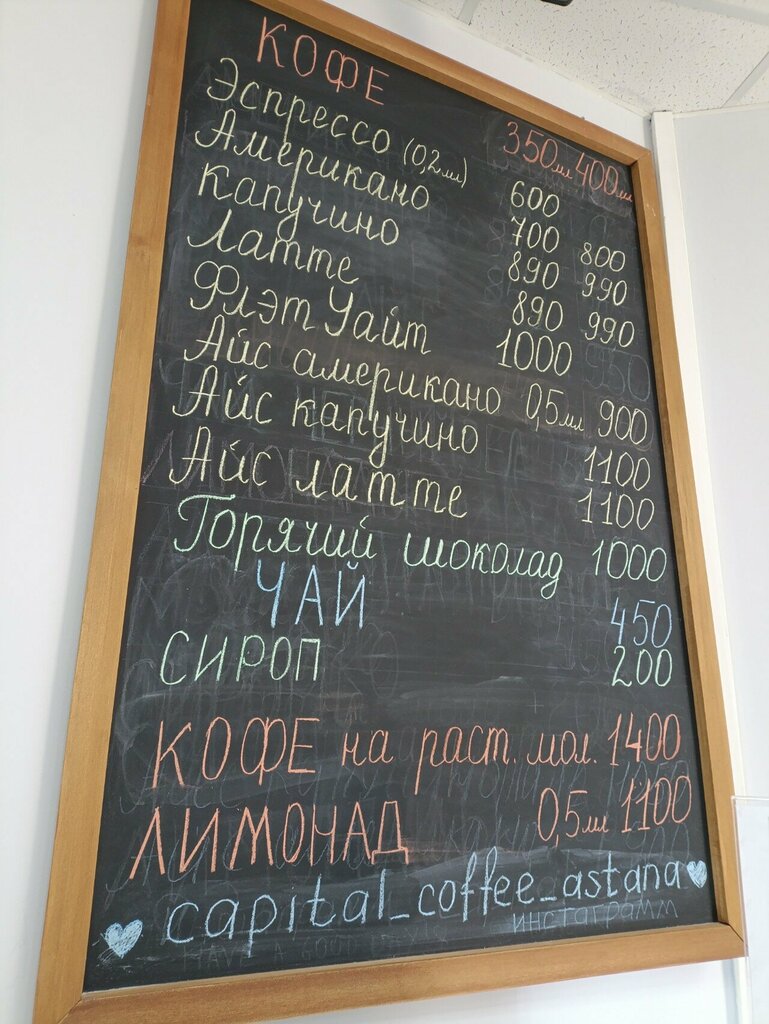 КОФЕ
350мл 400мл
Эспрессо (0,2мл) 600
Американо 700 800
Капучино 890 990
Латте 890 990
Флэт Уайт 1000
Айс американо 0,5мл 900
Айс капучино 1100
Айс латте 1100
Горячий шоколад 1000
ЧАЙ 450
СИРОП 200
КОФЕ на раст. мол. 1400
ЛИМОНАД 0,5мл 1100
capital_coffee_astana
инстаграмм